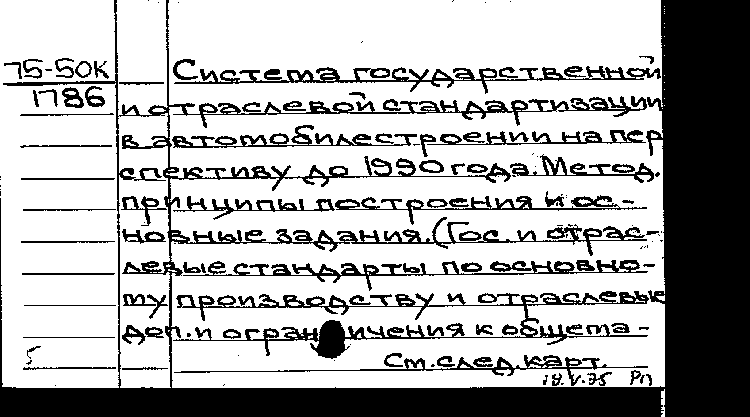 75-50К
1786
Система государственной
и отраслевой стандартизации
в автомобилестроении на пер
спективу до 1990 года. Метод.
принципы построения и ос-
новные задания. (Гос. и отрас-
левые стандарты по основно-
му производству и отраслевые
доп. и ограничения к общета-
5
См. след. карт.
18.V.75 РП